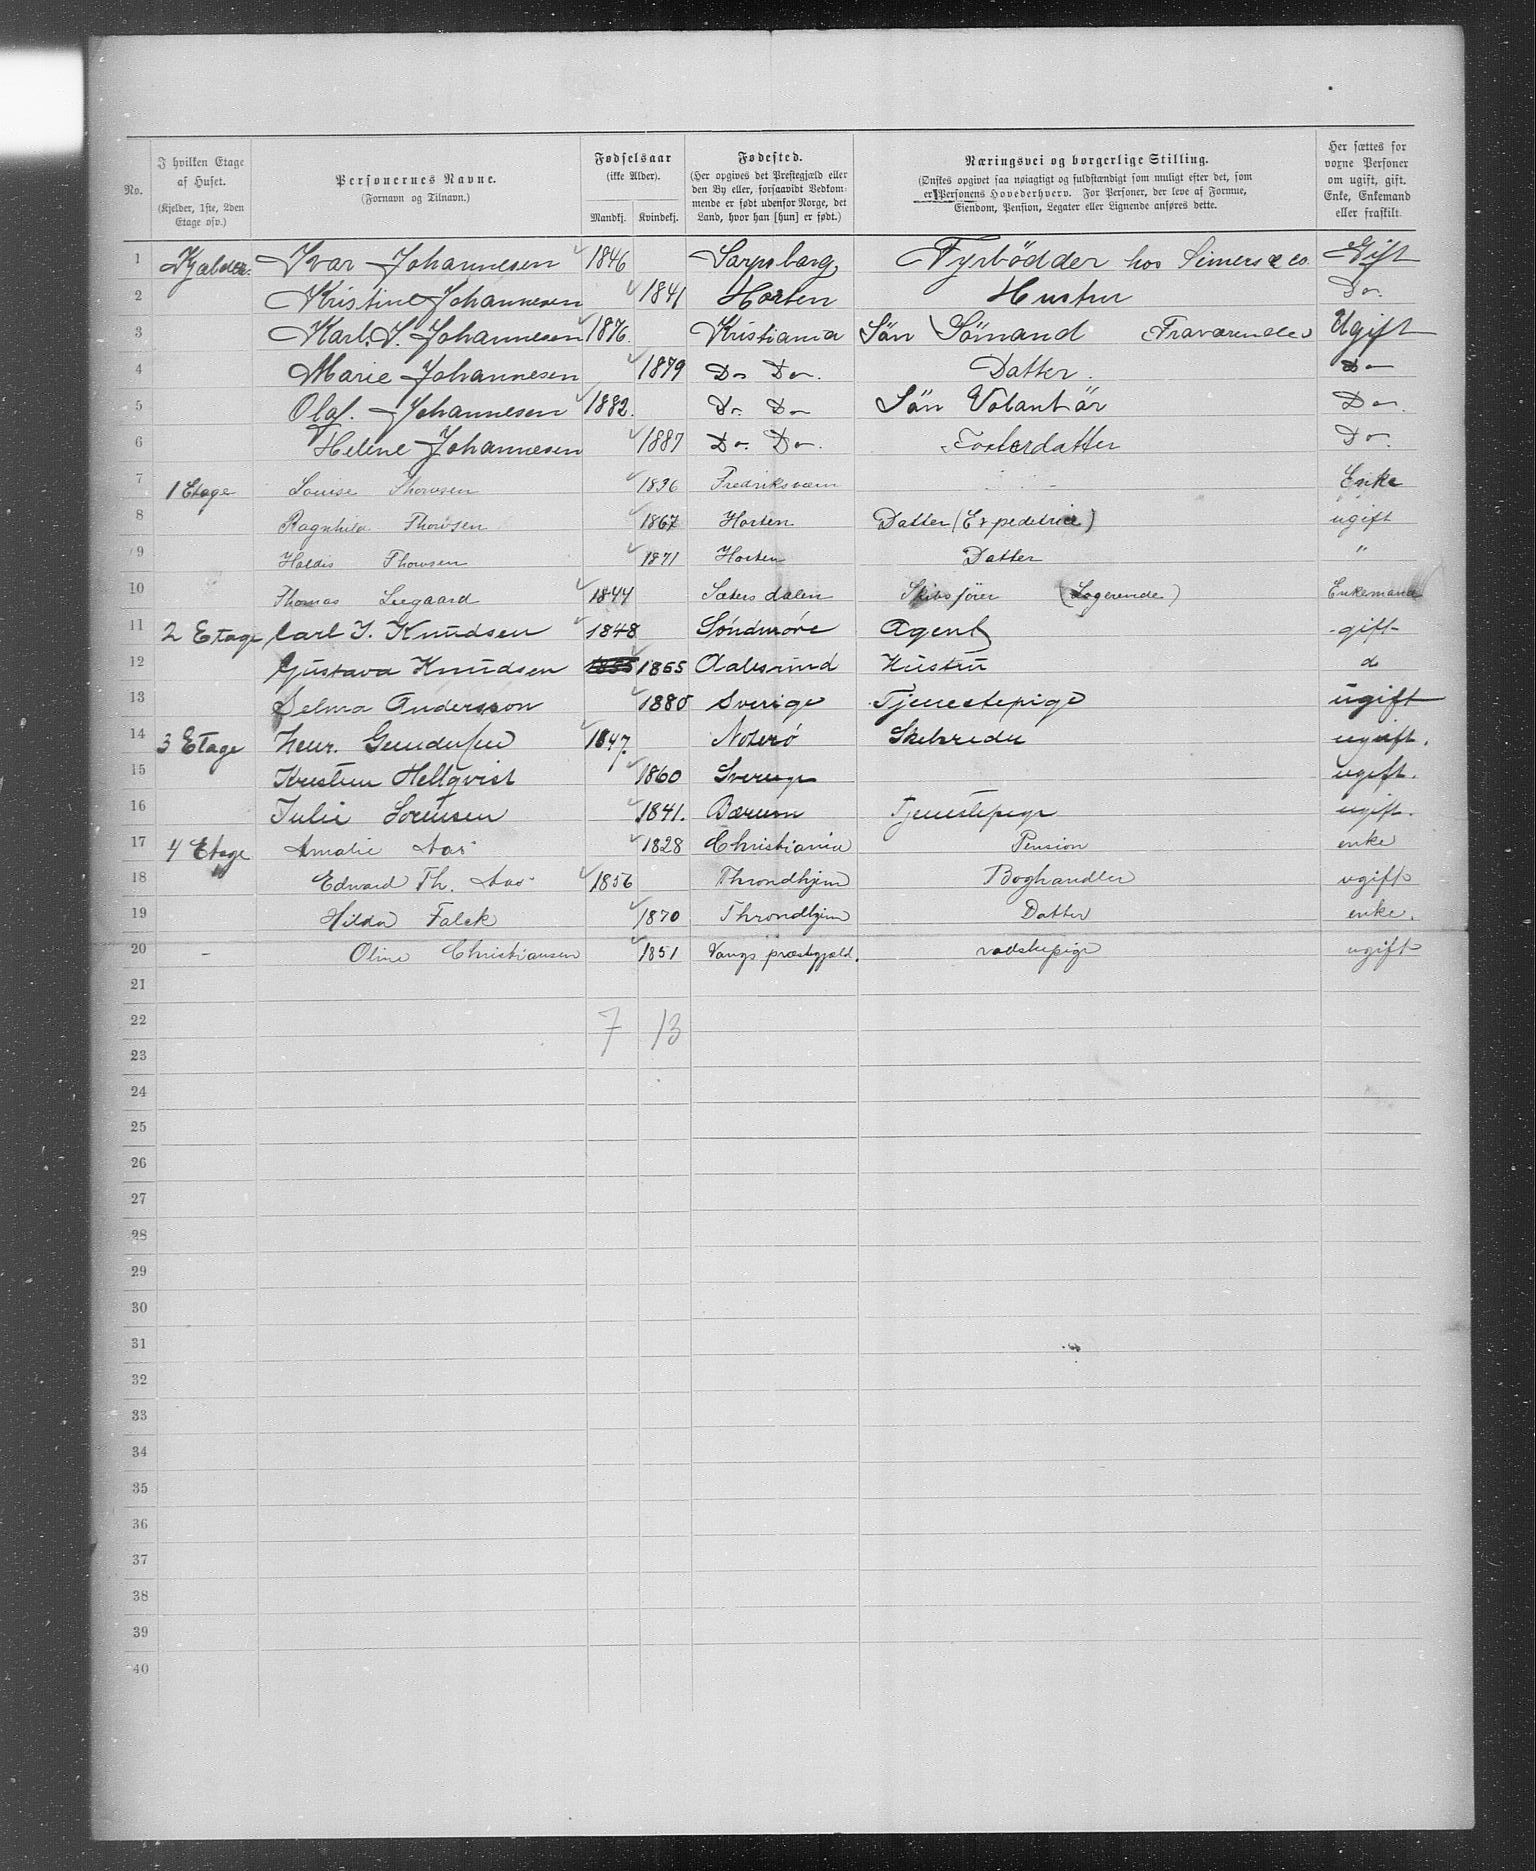 No. | I hvilken Etage af Huset. (Kjelder, 1ste, 2den Etage osv.) | Personernes Navne. (Fornavn og Tilnavn.) | Fødselsaar (ikke Alder). Mandkj. | Kvindekj. | Fødested. (Her opgives det Præstegjæld eller den By eller, forsaavidt Vedkommende er født udenfor Norge, det Land, hvor han [hun] er født.) | Næringsvei og borgerlige Stilling. (Ønskes opgivet saa nøiagtigt og fuldstændigt som muligt efter det, som er Personens Hovederhverv. For Personer, der leve af Formue, Eiendom, Pension, Legater eller Lignende anføres dette. | Her sættes for voxne Personer om ugift, gift, Enke, Enkemand eller fraskilt.
1 | Kjælder. | Ivar Johannesen | 1846 | | Sarpsborg | Fyrbödder hos Simers & co. | Gift
2 | | Kristine Johannesen | | 1841 | Horten | Hustru | Do.
3 | | Karl. J. Johannesen | 1876. | | Kristiania | Sön Sömand Fraværende | Ugift
4 | | Marie Johannesen | | 1879 | Do Do. | Datter. | Do
5 | | Olaf. Johannesen | 1882. | | Do. Do | Sön Volantär | Do.
6 | | Helene Johannesen | | 1887 | Do. Do. | Fosterdatter | Do.
7 | 1 Etage | Louise Thowsen | | 1836 | Fredriksværn | | Enke
8 | | Ragnhild Thowsen | | 1867 | Horten | Datter (Expeditrice) | ugift
9 | | Haldis Thowsen | | 1871 | Horten | Datter | "
10 | | Thomas Leegaard | 1844 | | Sætersdalen | Skibsfører (Logerende) | Enkemand
11 | 2 Etage | Carl J. Knudsen | 1848 | | Søndmøre | Agent | gift
12 | | Gustava Knudsen | | 1855 | Aalesund | Hustru | d
13 | | Selma Andersson | | 1880 | Sverige | Tjenestepige | ugift
14 | 3 Etage | Henr. Gundersen | 1847. | | Noterö | | ugift.
15 | | Kristine Hellqvist | | 1860 | Sverige | | ugift.
16 | | Julie Sorensen | | 1841. | Bærum | Tjenestepige | ugift.
17 | 4 Etage | Amalie Aas | | 1828 | Christiania | Pension | enke
18 | " | Edvard Th. Aas | 1856 | | Throndhjem | Boghandler | ugift
19 | | Hilda Falck | | 1870 | Throndhjem | Datter | enke.
20 | - | Oline Christiansen | | 1851 | Vangs præstegjæld. | | ugift
21
22 | | | 7 | 13
23
24
25
26
27
28
29
30
31
32
33
34
35
36
37
38
39
40